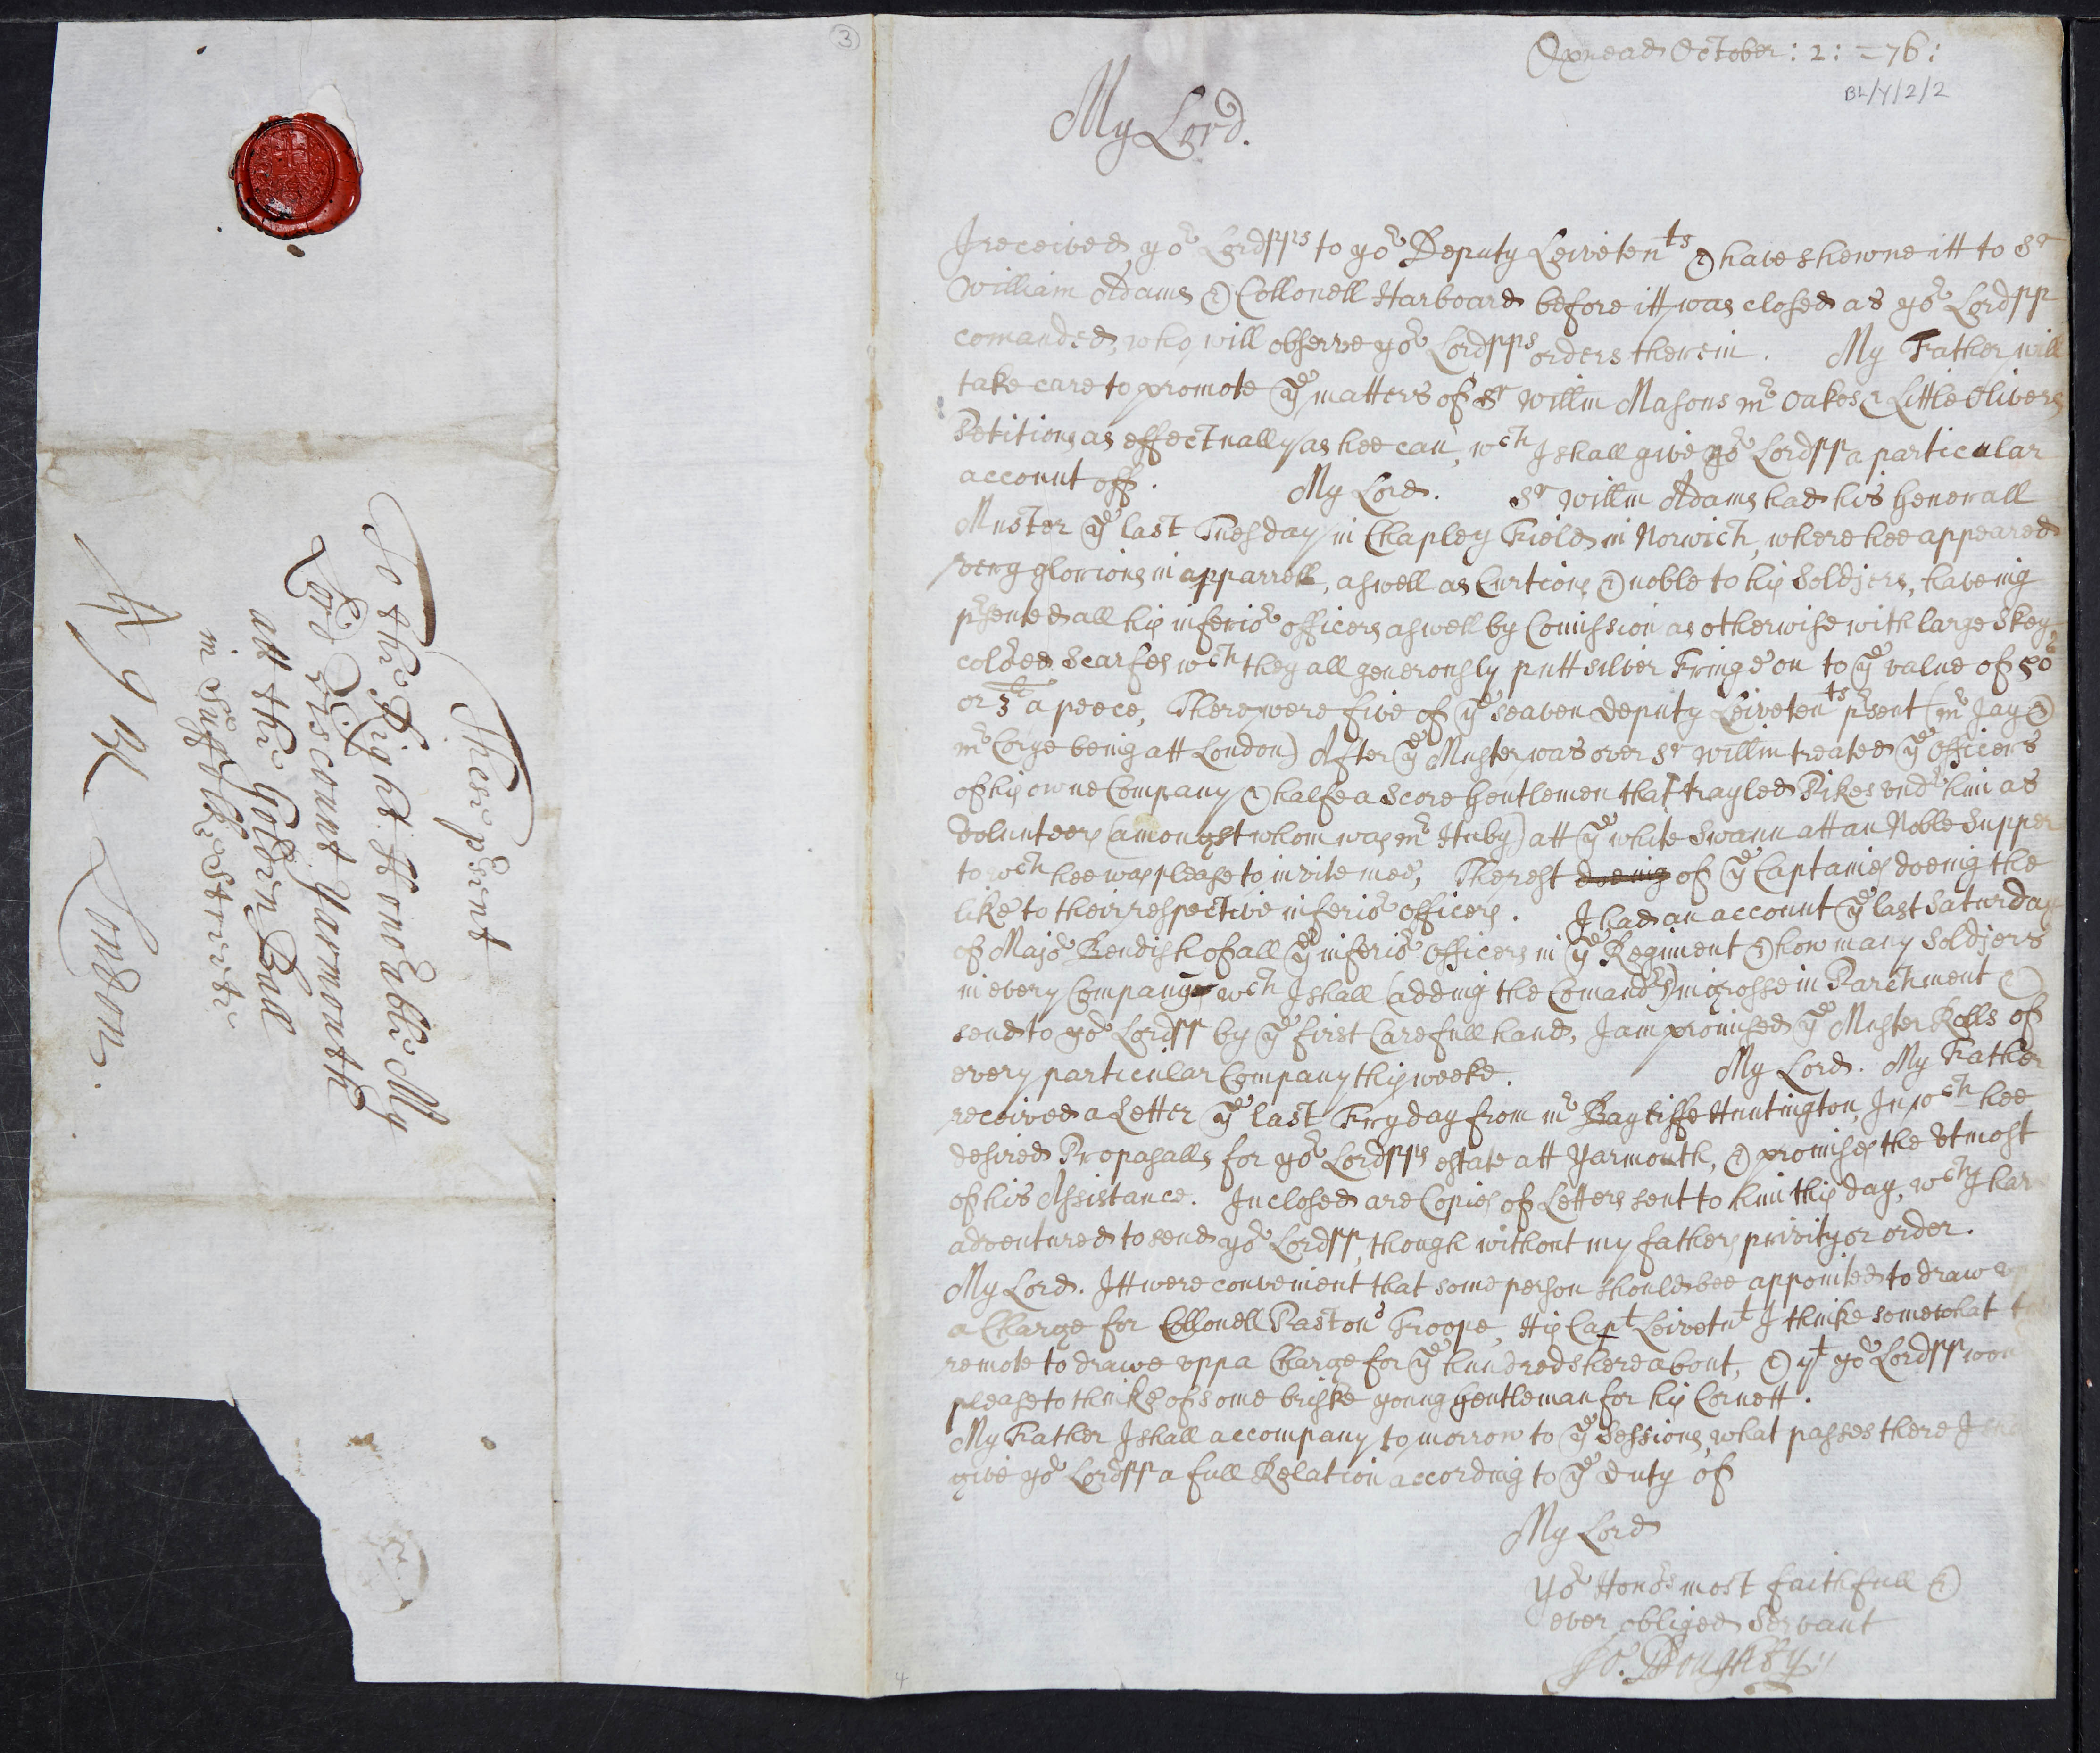 3
Oxnead October: 2: =76:
BL/Y/2/2
My Lord.
I received yor Lordpps to yor Deputy Leivetents & have shewne itt to Sr
William Adams & Collonell Harboard before itt was closed as yor Lordpp
comanded, who will observe yor Lordpps orders therein. My Father will
take care to promote ye matters of Sr Willm Masons mr Oakes & Little Olivers
Petitions as effectually as hee can, wch I shall give yor Lordpp a particular
account off. My Lord. Sr Willm Adams had his Generall
Muster ye last Tuesday in Chapley Field in Norwich, where hee appeared
very glorious in apparrell, as well as Curtious & noble to his Soldjers, haveing
prsented all his inferior officers as well by Comission as otherwise with large Skey
colored Scarfes wch they all generously putt silver Fringe on to ye value of 50s
or 3li a peece, There were five of ye seaven Deputy Leivetents prsent (mr Jay &
mr Corye being att London) After ye Muster was over Sr Willm treated ye officers
of his owne Company & halfe a Score Gentlemen that trayled Pikes undr him as
Volunteers (amongst whom was mr Huby) att ye white Swann att an Noble Supper
to wch hee was please to invite mee, The rest doeing of ye Captaines doeing the
like to their respective inferior officers. I had an account ye last Saturday
of Major Bendish of all ye inferior officers in ye Regiment & how many Soldjers
in every Company wch I shall (adding the Comandrs) ingrosse in Parchment &
send to yor Lordpp by ye first Carefull hand, I am promised ye Muster Rolls of
every particular Company this weeke. My Lord. My Father
received a Letter ye last Fryday from mr Bayliffe Huntington, In wch hee
desired Propasalls for yor Lordpps estate att Yarmouth, & promises the Utmost
of his Assistance. Inclosed are Copies of Letters sent to him this day, wch I have
adventured to send yor Lordpp, though without my fathers privity or order.
My Lord. Itt were convenient that some person should bee appointed to draw up
a Charge for Collonell Pastons Troope, His Capt Leivetnt I thinke somewhat too
remote to drawe upp a Charge for ye hundreds hereabout, & yt yor Lordpp woul
please to thinke of some briske young gentleman for his Cornett.
My Father I shall accompany to morrow to ye Sessions, what passes there I
give yor Lordpp a full Relation according to ye duty of
My Lord
Yor Honors most faithfull &
ever obliged Servant
Jo. Doughty
4
These prsent
To the Right Honorable My
Lord Viscount Yarmouth
att the Golden Ball
in Suffolke Streete
London.